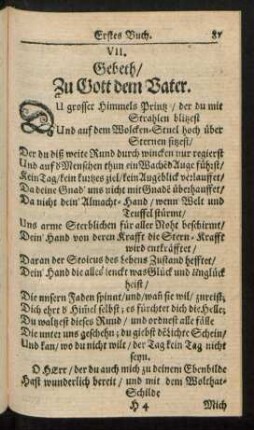 Erstes Buch. 81
VII.
Gebeth/
Zu Gott dem Vater.
DU grosser Himmels Printz / der du mit
Strahlen blitzest
Und auf dem Wolcken-Stuel hoch über
Sternen sitzest/
Der du diß weite Rund durch wincken nur regierst
Und auf d's Menschen thun ein Wachēd Auge führst/
Kein Tag/kein kurtzes ziel/kein Augēblick verlauffet/
Da deine Gnad' uns nicht mit Gnadē überhauffet/
Da nicht dein' Almacht-Hand / wenn Welt und
Teuffel stürmt/
Uns arme Sterblichen für aller Noht beschirmt/
Dein' Hand von deren Krafft die Stern-Krafft
wird entkräfftet/
Daran der Stoicus des lebens Zustand hefftet/
Dein' Hand die alles lenckt was Glück und unglück
heist/
Die unsern Faden spinnt/und/wañ sie wil/zureist;
Dich ehrt d's Himel selbst; es fürchtet dich die Helle;
Du waltzest dieses Rund/ und ordnest alle fälle
Die unter uns geschehn; du giebst dē Licht Schein/
Und kan/wo du nicht wile/der Tag kein Tag nicht
seyn.
O HErr/ der du auch mich zu deinem Ebenbilde
Hast wunderlich bereit/ und mit dem Wolthat-
Schilde
H 4 Mich